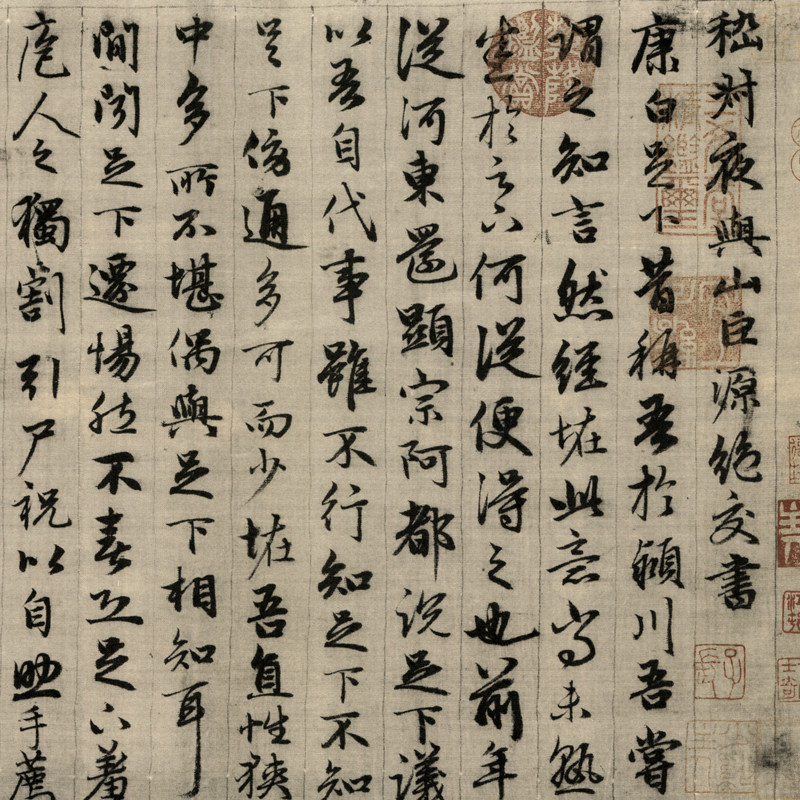 嵇叔夜與山巨源絕交書
康白足下昔稱吾於潁川吾嘗
謂之知言然經怪此意尚未熟
悉於足下何從便得之也前年
從河東還顯宗阿都說足下議
以吾自代事雖不行知足下不知
足下傍通多可而少怪吾直性狹
中多所不堪偶與足下相知耳
間聞足下遷惕然不喜恐足下羞
庖人之獨割引尸祝以自助手薦